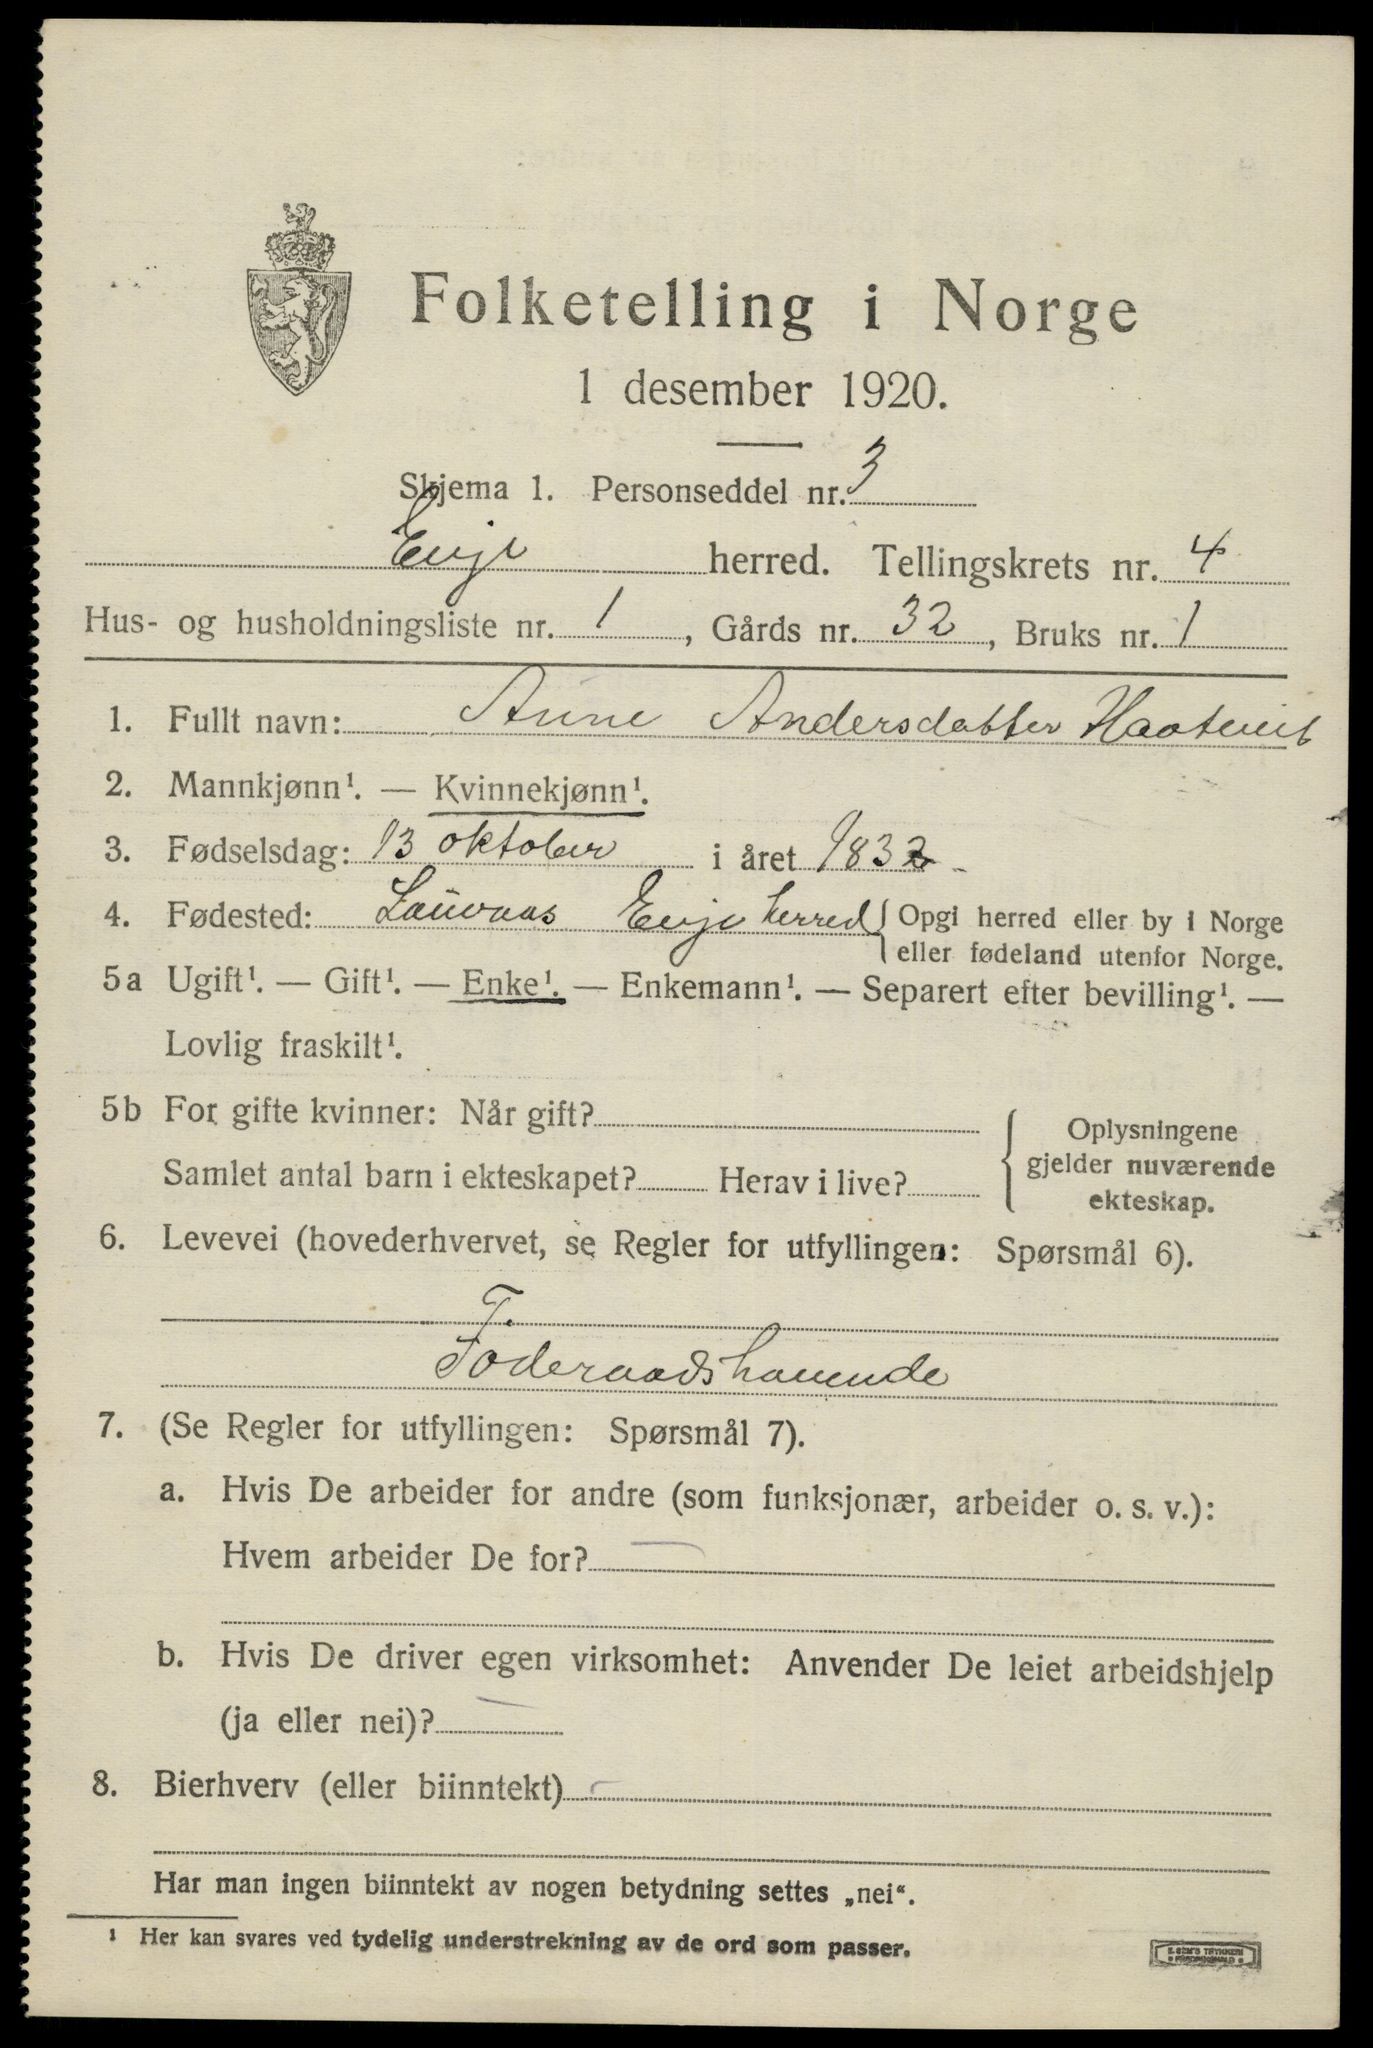 Folketelling i Norge
1 desember 1920.
Skjema 1. Personseddel nr. 3
Evje herred. Tellingskrets nr. 4
Hus- og husholdningsliste nr. 1, Gårds nr. 32, Bruks nr. 1
1. Fullt navn: Anne Andersdatter Haatveit
2. Mannkjønn¹. — Kvinnekjønn¹.
3. Fødselsdag: 13 oktober i året 1832
4. Fødested: Lauvaas Evje herred { Opgi herred eller by i Norge
eller fødeland utenfor Norge.
5a Ugift¹. — Gift¹. — Enke¹. — Enkemann¹. — Separert efter bevilling¹. —
Lovlig fraskilt¹.
5b For gifte kvinner: Når gift?
Samlet antal barn i ekteskapet? Herav i live?
{ Oplysningene
gjelder nuværende
ekteskap.
6. Levevei (hovederhvervet, se Regler for utfyllingen: Spørsmål 6).
F.
Foderaadshavende
7. (Se Regler for utfyllingen: Spørsmål 7).
a. Hvis De arbeider for andre (som funksjonær, arbeider o. s. v.):
Hvem arbeider De for? —
b. Hvis De driver egen virksomhet: Anvender De leiet arbeidshjelp
(ja eller nei)? —
8. Bierhverv (eller biinntekt) -
Har man ingen biinntekt av nogen betydning settes „nei“.
¹ Her kan svares ved tydelig understrekning av de ord som passer.